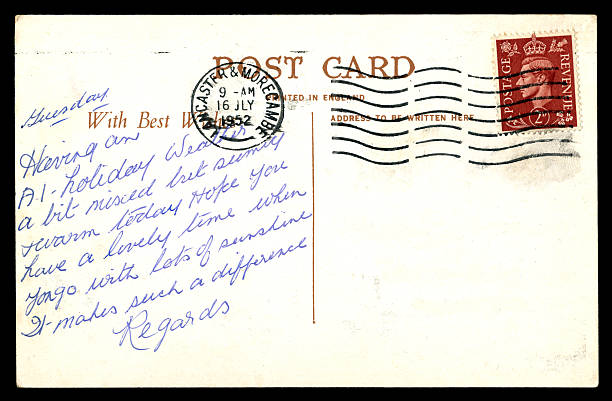 POST CARD
LANCASTER & MORECAMBE
9 - AM
16 JLY
1952
PRINTED IN ENGLAND
With Best Wishes
ADDRESS TO BE WRITTEN HERE
POSTAGE
REVENUE
2D
Tuesday
Having an
A.1. holiday Weather
a bit mixed but sunny
& warm today Hope you
have a lovely time when
you go with lots of sunshine
It makes such a difference
Regards